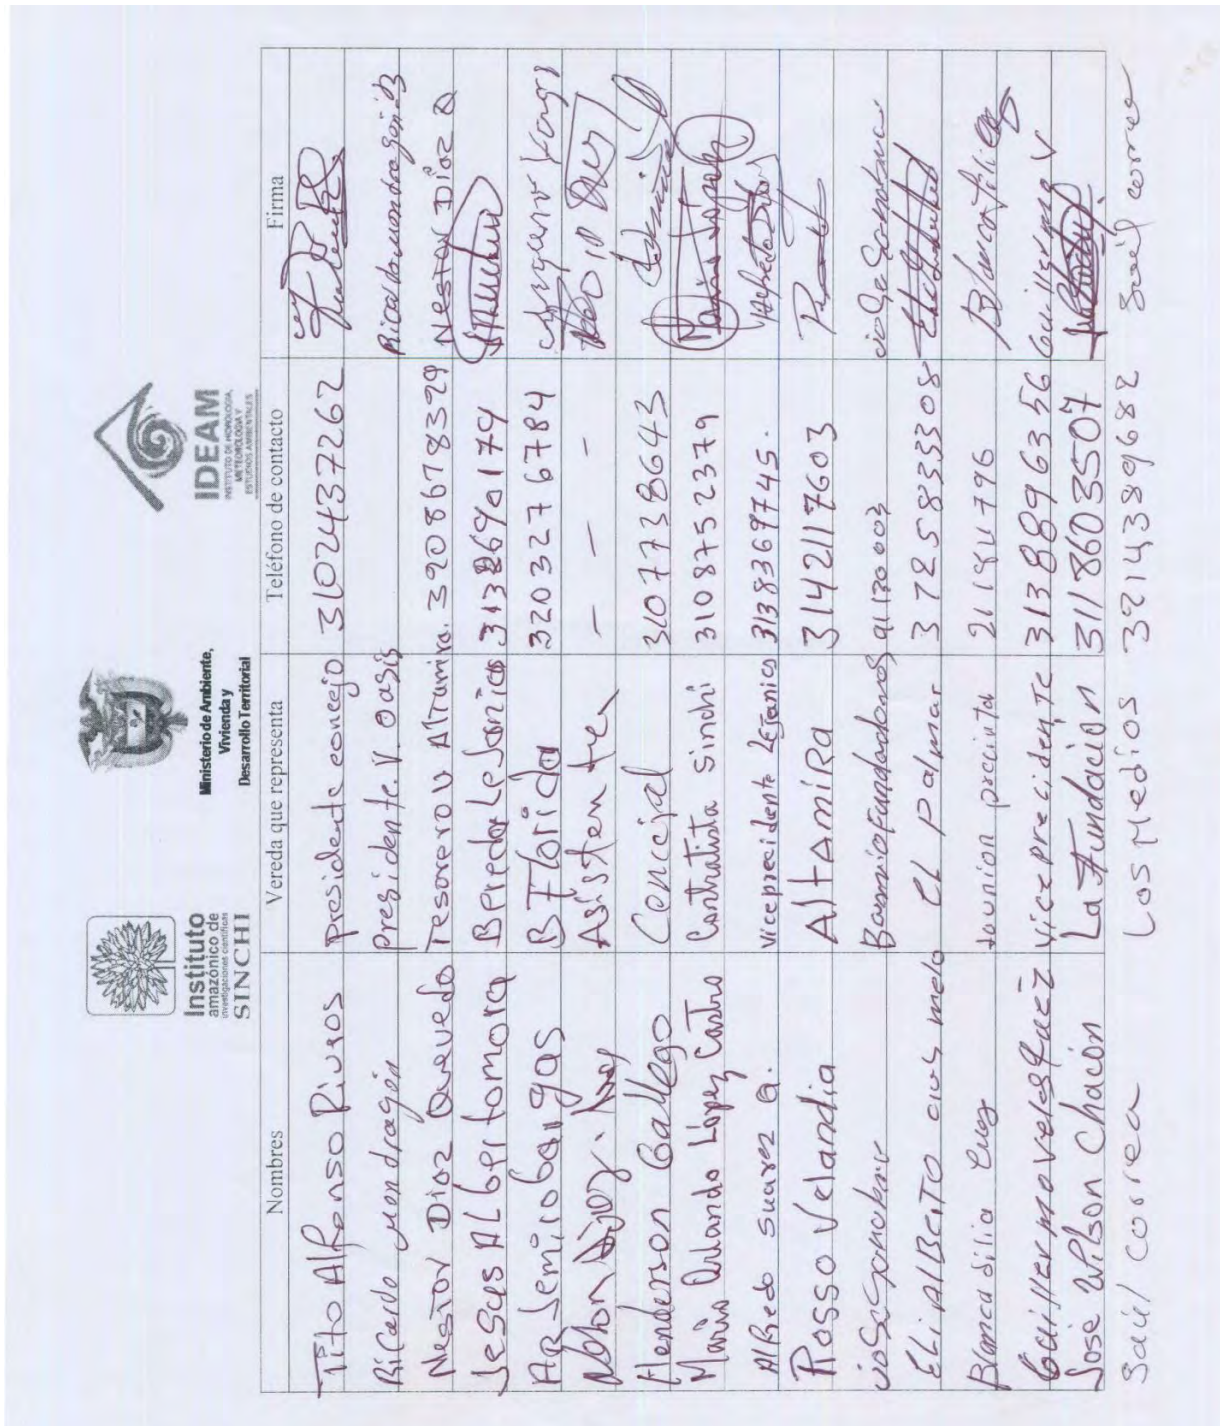 Instituto
amazónico de
investigaciones científicas
SINCHI
Ministerio de Ambiente,
Vivienda y
Desarrollo Territorial
IDEAM
INSTITUTO DE HIDROLOGÍA,
METEOROLOGÍA Y
ESTUDIOS AMBIENTALES
Nombres Vereda que representa Teléfono de contacto Firma
Tito Alfonso Pivros Presidente concejo 3102437262
Ricardo mondragón presidente. V. oasis Ricardo mondragón
Nestor Dioz Quevedo Tesorero V Altamira. 3208678329 Nestor Díaz Q
Jesus ALberto mora B Predor Lejanias
Arsemio Bargas B Florida 3203276784
Asistente - - -
Henderson Gallego Concejal 3107738643
Mario Orlando López Castro Contratista sinchi 3108752379
Alfredo suarez a. vicepresidente Lejanias 3138369745.
Rosso Velandia Altamira 3142117603
Barrio Fundadores 91130003
ELi ALBerTO melo EL Palmar 3725833308
Blanca Silia Cruz launion precinta
Guillermo velesquez vice precidente 3138896356 Guillermo V
José Wilson Chacón La Fundación 3118603507
Saúl Correa Los Medios 3214389682 Saúl correa